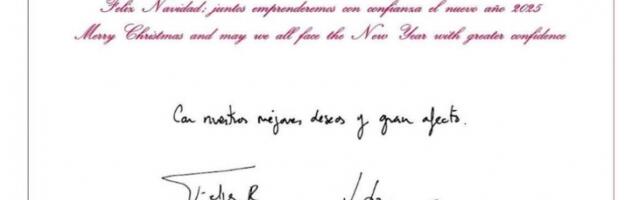 Feliz Navidad; juntos emprenderemos con confianza el nuevo año 2025
Merry Christmas and may we all face the New Year with greater confidence
Con nuestros mejores deseos y gran afecto.
Felipe R